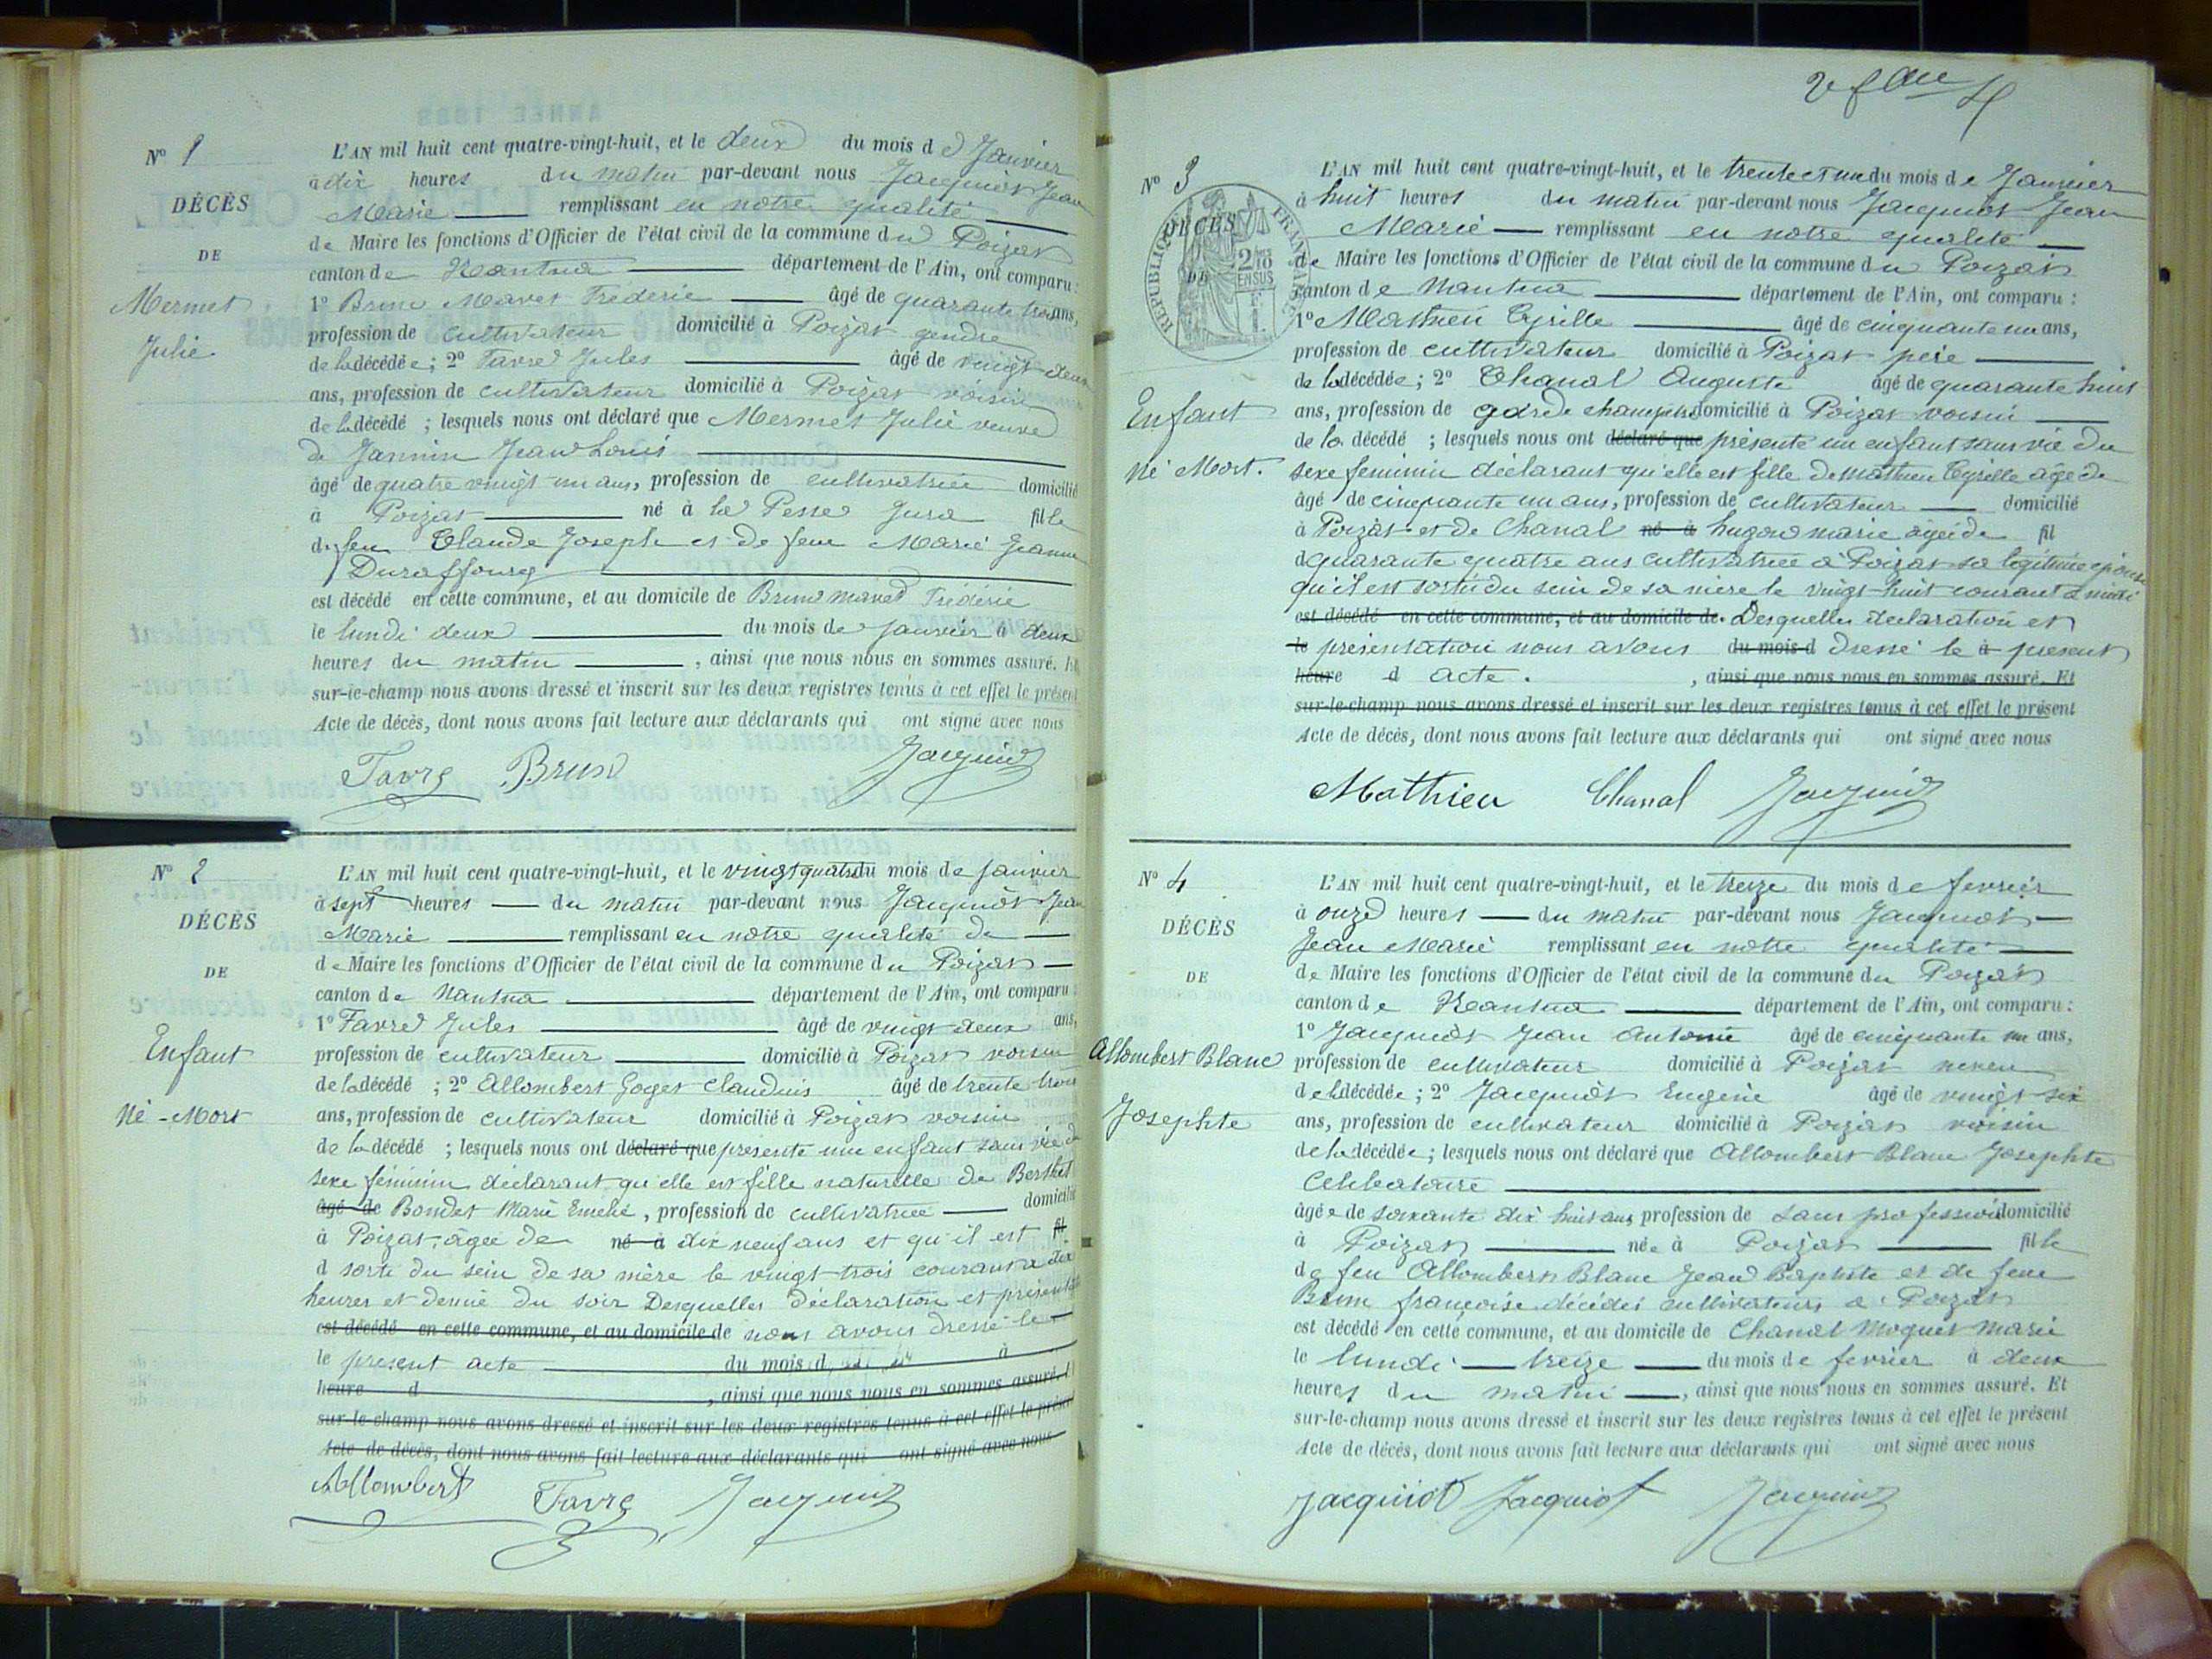 N° 1
DÉCÈS
DE
Mermet
Julie
L'AN mil huit cent quatre-vingt-huit, et le deux du mois de Janvier
à dix heures du matin par-devant nous Jacquiot Jean
Marie remplissant en notre qualité
de Maire les fonctions d'Officier de l'état civil de la commune du Poizat
canton de Nantua département de l'Ain, ont comparu :
1° Brun Mavet Fréderic âgé de quarante trois ans,
profession de cultivateur domicilié à Poizat gendre
de la décédée ; 2° Favre Jules âgé de vingt deux
ans, profession de cultivateur domicilié à Poizat voisin
de la décédé ; lesquels nous ont déclaré que Mermet Julie veuve
de Jannin Jean Louis
âgé de quatre vingt un ans, profession de cultivatrice domicilié
à Poizat né à la Pesse Jura fille
de feu Claude Joseph et de feue Marie Jeanne
Duraffourg
est décédé en cette commune, et au domicile de Brun Mavet Fréderic
le lundi deux du mois de janvier à deux
heures du matin , ainsi que nous nous en sommes assuré. Et
sur-le-champ nous avons dressé et inscrit sur les deux registres tenus à cet effet le présent
Acte de décès, dont nous avons fait lecture aux déclarants qui ont signé avec nous
Favre Brun Jacquiot
N° 2
DÉCÈS
DE
Enfant
Né-Mort
L'AN mil huit cent quatre-vingt-huit, et le vingt quatre du mois de janvier
à sept heures du matin par-devant nous Jacquiot Jean
Marie remplissant en notre qualité de
de Maire les fonctions d'Officier de l'état civil de la commune du Poizat
canton de Nantua département de l'Ain, ont comparu :
1° Favre Jules âgé de vingt deux ans,
profession de cultivateur domicilié à Poizat voisin
de la décédé ; 2° Allombert Goget Claudius âgé de trente trois
ans, profession de cultivateur domicilié à Poizat voisin
de la décédé ; lesquels nous ont déclaré que présenté un enfant sans vie du
sexe féminin déclarant qu'elle est fille naturelle de Berthet
âgé de Bondet Marie Emelie, profession de cultivatrice domicilié
à Poizat, âgée de né à dix neuf ans et qu'il est fil
d sorti du sein de sa mère le vingt-trois courant à dix
heures et demie du soir Desquelles déclaration et présentation
est décédé en cette commune, et au domicile de nous avons dressé le
le présent acte du mois d à
heure d , ainsi que nous nous en sommes assuré. Et
sur-le-champ nous avons dressé et inscrit sur les deux registres tenus à cet effet le présent
Acte de décès, dont nous avons fait lecture aux déclarants qui ont signé avec nous
Allombert Favre Jacquiot
N° 3
DÉCÈS
DE
RÉPUBLIQUE FRANÇAISE
2/10 EN SUS
Enfant
Né Mort.
L'AN mil huit cent quatre-vingt-huit, et le trente et un du mois de Janvier
à huit heures du matin par-devant nous Jacquiot Jean
Marie remplissant en notre qualité
de Maire les fonctions d'Officier de l'état civil de la commune du Poizat
canton de Nantua département de l'Ain, ont comparu :
1° Mathieu Cyrille âgé de cinquante un ans,
profession de cultivateur domicilié à Poizat père
de la décédée ; 2° Chanal Auguste âgé de quarante huit
ans, profession de garde champêtre domicilié à Poizat voisin
de la décédé ; lesquels nous ont déclaré que présenté un enfant sans vie du
sexe feminin déclarant qu'elle est fille de Mathieu Cyrille âgé de
âgé de cinquante un ans, profession de cultivateur domicilié
à Poizat et de Chanal né à hugon marie âgée de fil
d quarante quatre ans cultivatrice à Poizat sa légitime épouse
qu'il est sorti du sein de sa mère le vingt-huit courant à midi
est décédé en cette commune, et au domicile de. Desquelles déclaration et
le présentation nous avons du mois d dressé le à présent
heure d acte. , ainsi que nous nous en sommes assuré. Et
sur-le-champ nous avons dressé et inscrit sur les deux registres tenus à cet effet le présent
Acte de décès, dont nous avons fait lecture aux déclarants qui ont signé avec nous
Mathieu Chanal Jacquiot
N° 4
DÉCÈS
DE
Allombert Blanc
Josephte
L'AN mil huit cent quatre-vingt-huit, et le treize du mois de fevrier
à onze heures du matin par-devant nous Jacquiot
Jean Marie remplissant en notre qualité
de Maire les fonctions d'Officier de l'état civil de la commune du Poizat
canton de Nantua département de l'Ain, ont comparu :
1° Jacquiot Jean Antoine âgé de cinquante un ans,
profession de cultivateur domicilié à Poizat neveu
de la décédée ; 2° Jacquiot Eugène âgé de vingt six
ans, profession de cultivateur domicilié à Poizat voisin
de la décédée ; lesquels nous ont déclaré que Allombert Blanc Josephte
Célibataire
âgée de soixante dix huit ans, profession de sans profession domicilié
à Poizat née à Poizat fille
de feu Allombert Blanc Jean Baptiste et de feue
Brun françoise décédés cultivateurs à Poizat
est décédé en cette commune, et au domicile de Chanal Moquet Marie
le lundi treize du mois de fevrier à deux
heures du matin , ainsi que nous nous en sommes assuré. Et
sur-le-champ nous avons dressé et inscrit sur les deux registres tenus à cet effet le présent
Acte de décès, dont nous avons fait lecture aux déclarants qui ont signé avec nous
Jacquiot Jacquiot Jacquiot